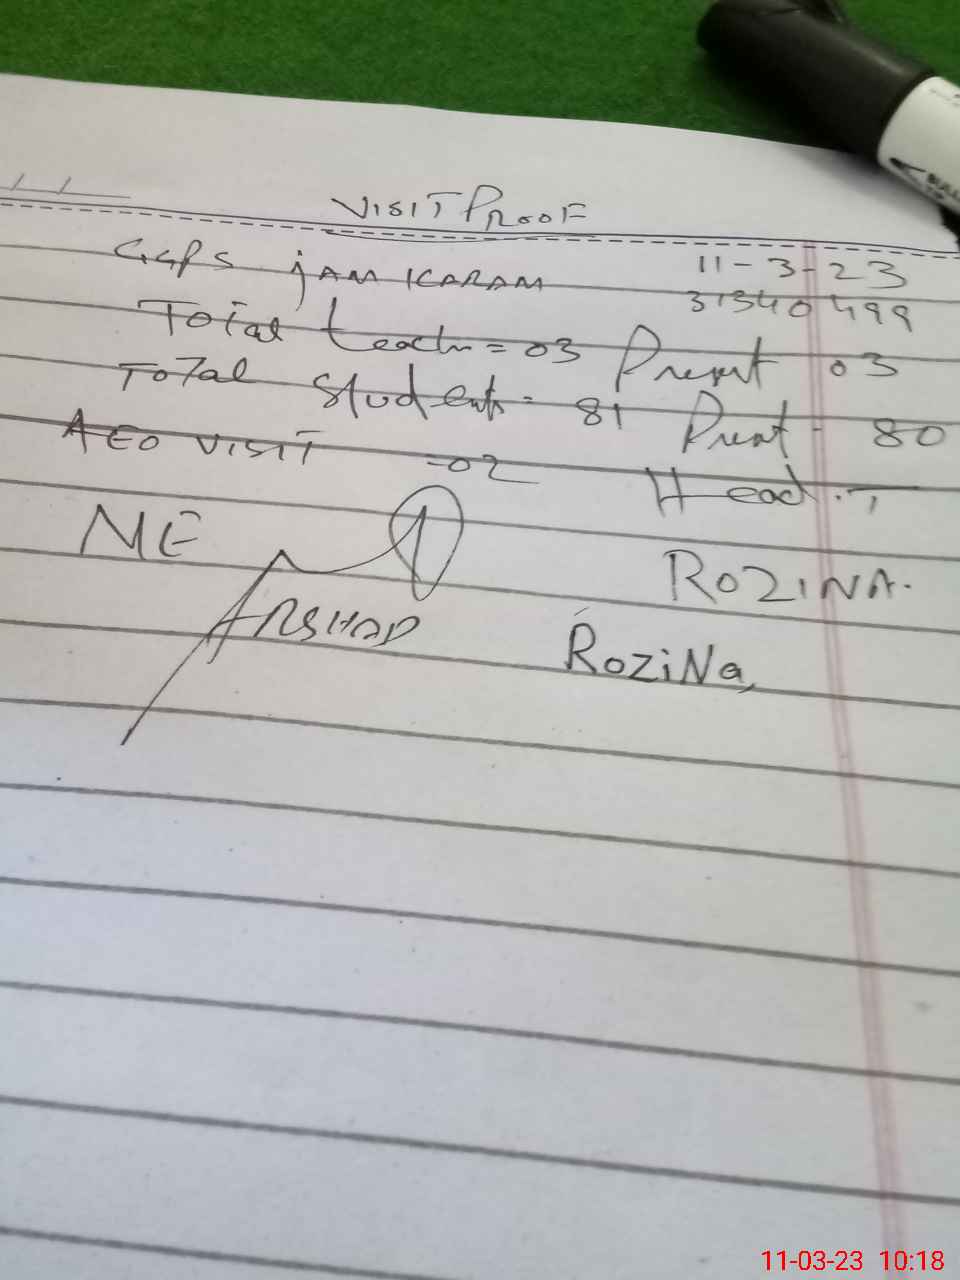 VISIT PROOF
GGPS jAM KARAM 11-3-23
31340499
Total teach = 03 Present 03
Total Students = 81 Present - 80
AEO VISIT = 02 Head . T
ME ROZINA.
ARSHAD RoziNa,
11-03-23 10:18